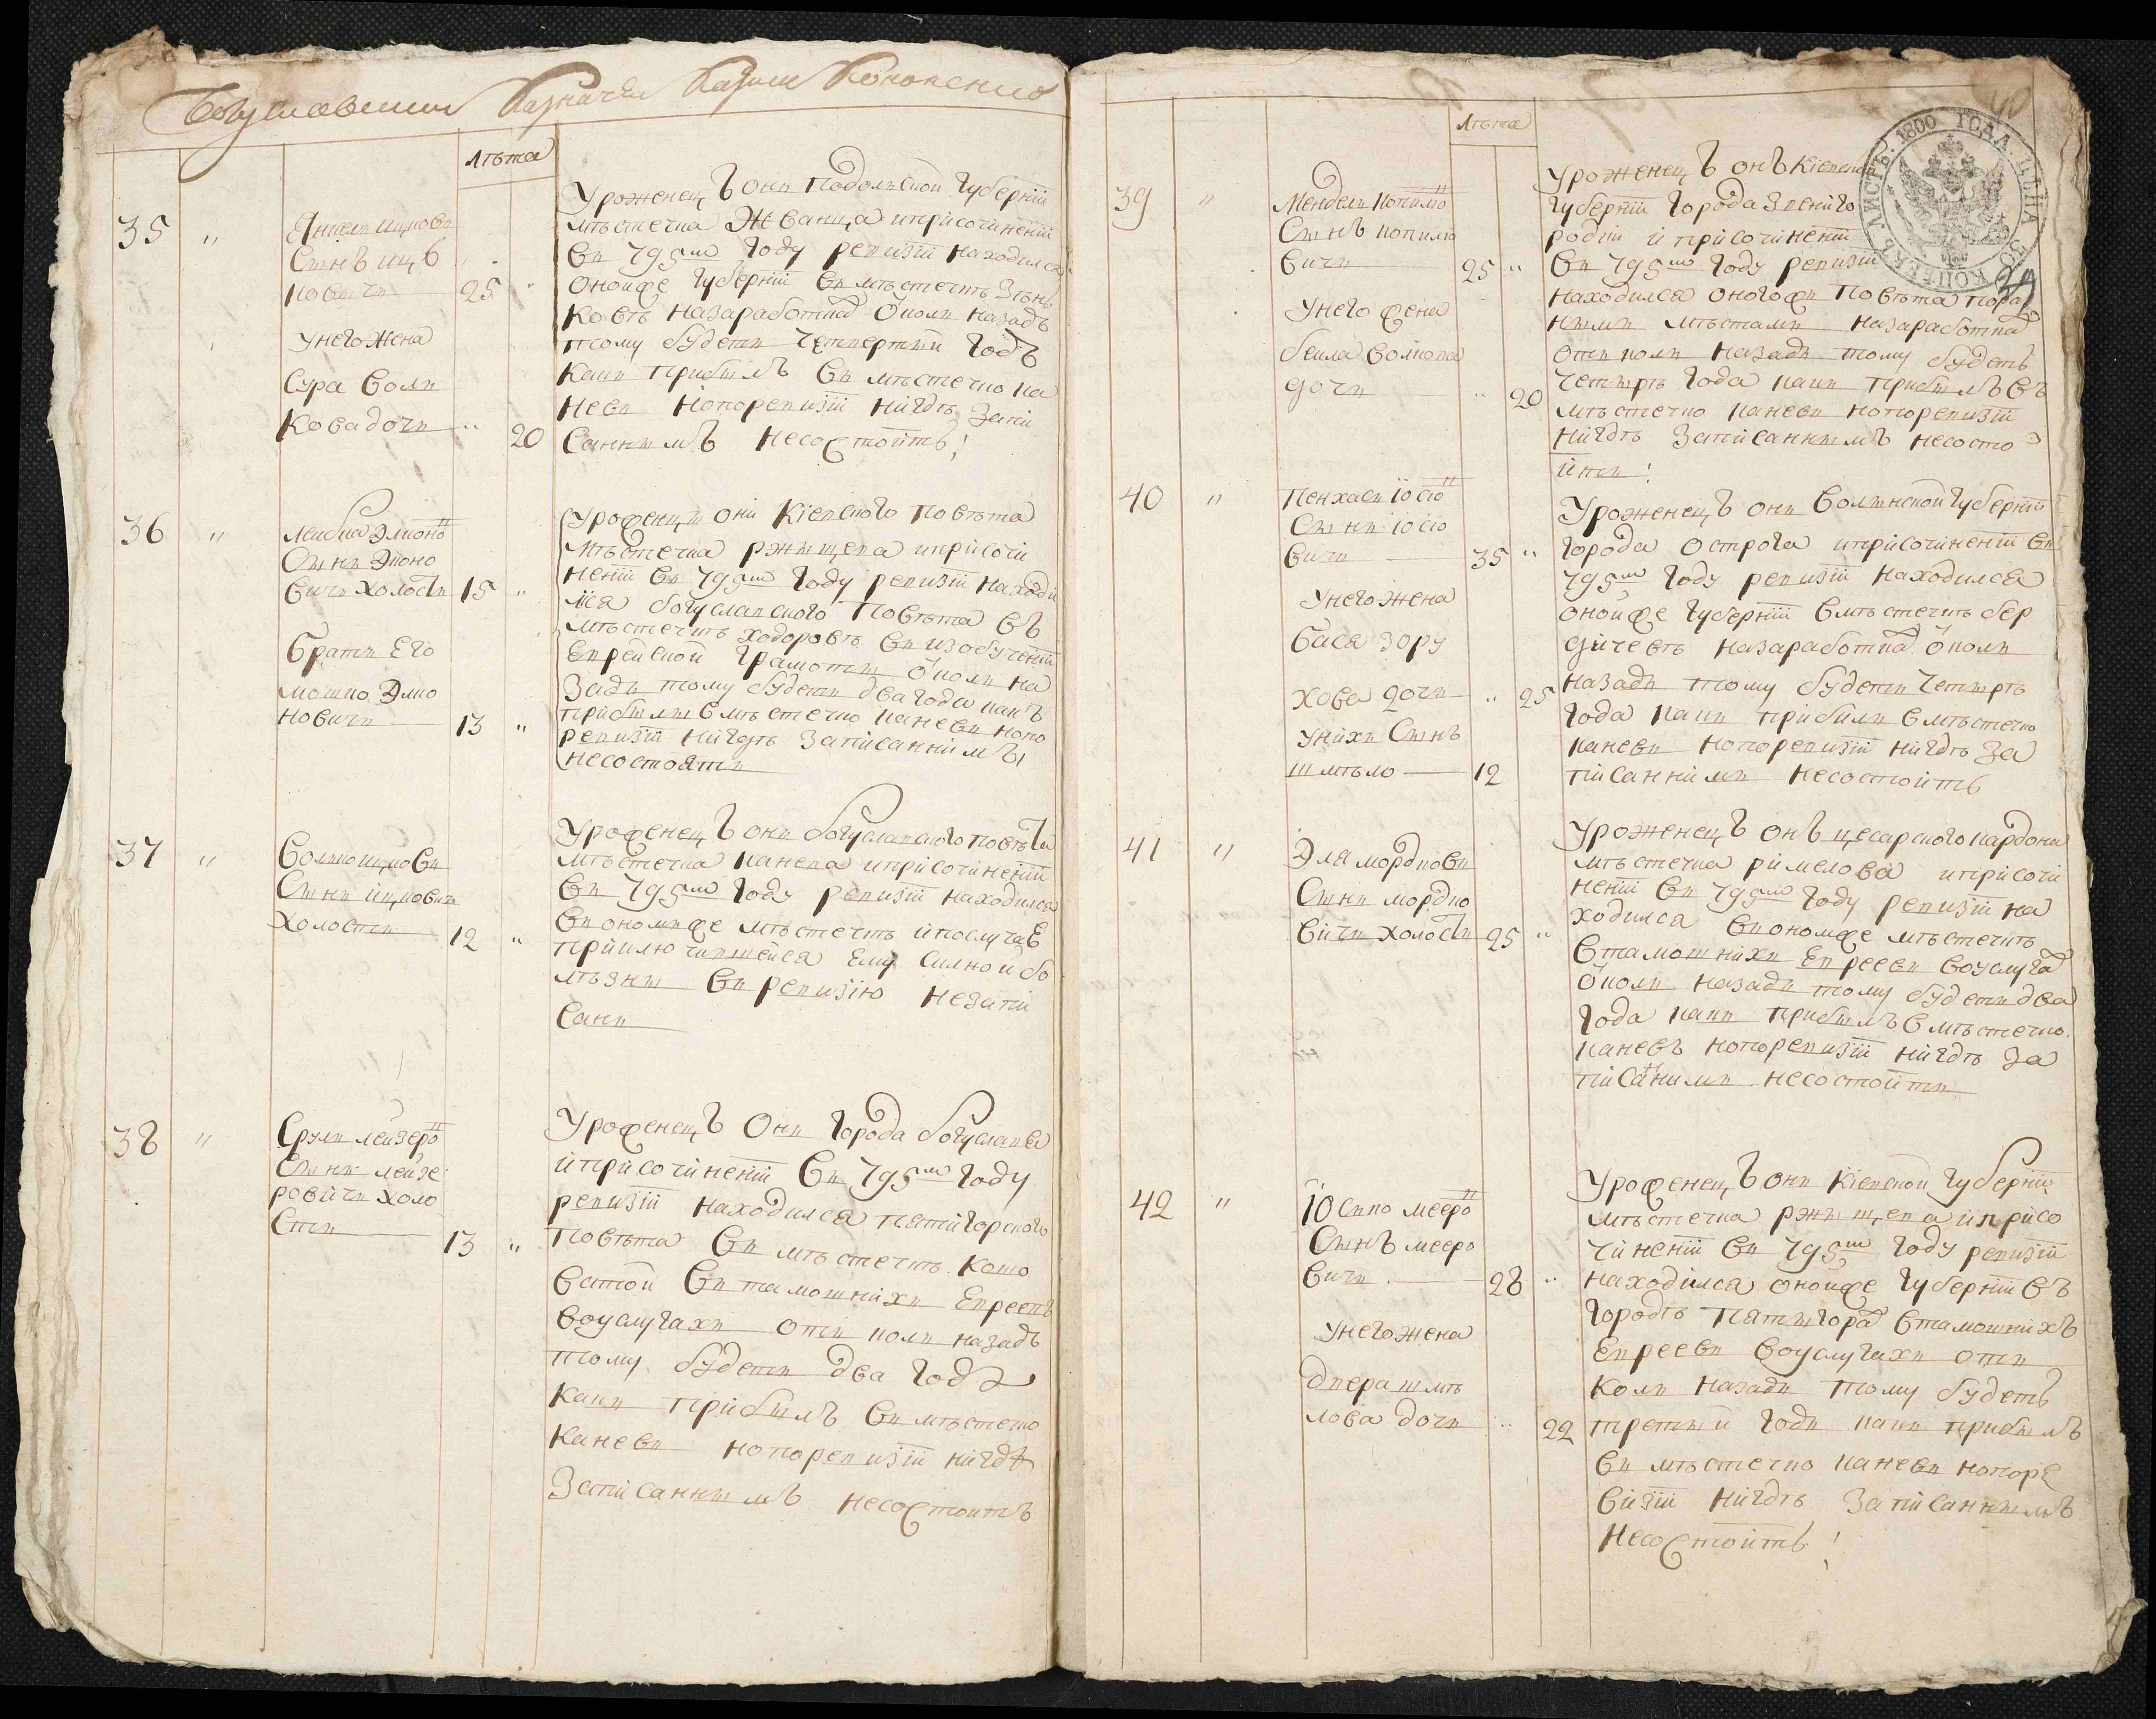 Богуславский Казначей
Лѣта
35 "
Сынъ ицъ
ковичъ 25 "
У него жена
Сура Вол
кова дочь " 20
Уроженецъ онъ Подолской губерніи
мѣстечка Жванца и при сочиненіи
въ 795мъ году ревизіи находился
оной же губерніи въ мѣстечкѣ Зѣнь
ковѣ на заработка околъ назадъ
тому будетъ четвертый годъ
какъ прибылъ въ мѣстечко ка
невъ но по ревизіи нигдѣ запи
саннымъ несостоитъ!
36 "
Сынъ
вичъ холостъ 15 "
Братъ Его
мошко Элио
новичъ 13 "
Уроженцы они Кіевского повѣта
мѣстечка ржищева и при сочи
неніи въ 795мъ году ревизіи находи
лися богуславского повѣта въ
мѣстечкѣ ходоровѣ въ изобученіи
Еврейской грамоты околъ на
задъ тому будетъ два года какъ
прибылы в мѣстечко каневъ но по
ревизіи нигдѣ записаннимъ
несостоятъ
37 "
Волко ицковъ
Сынъ ицковичъ
холостъ 12 "
Уроженецъ онъ богуславского повѣта
мѣстечка канева и при сочиненіи
въ 795мъ году ревизіи находился
въ ономъ же мѣстечкѣ и по случаѣ
приключившейся Ему силной бо
лѣзны въ ревизію незапи
санъ
38 "
Срулъ лейзеро
Сынъ лейзе
ровичъ холо
стъ 13 "
Уроженецъ Онъ города богуслава
и при сочиненіи въ 795мъ году
ревизіи находился пятигорского
повѣта въ мѣстечкѣ Кошо
ватой въ тамошнихъ Евреевъ
во услугахъ отъ колъ назадъ
тому будетъ два года
какъ прибылъ въ мѣстечко
каневъ но по ревизіи нигдѣ
записаннымъ несостоитъ
Лѣта
39 "
Мендель
Сынъ
вичъ 25 "
У него жена
бейла волкова
дочь " 20
Уроженецъ онъ Кіевской
губерніи города звениго
родки и при сочиненіи
въ 795мъ году ревизіи
находился оного жъ повѣта
мѣстами на заработка
отъ колъ назадъ тому будетъ
четвырть года какъ прибылъ въ
мѣстечко каневъ но по ревизіи
нигдѣ записаннымъ несосто
итъ!
1800 ГОДА. ЦѢНА 30 КОПѢЕКЪ ЛИСТЪ.
39
40 "
Пенхасъ іосіо
Сынъ іосіо
вичъ 35 "
У него жена
Бася зору
хова дочь " 25
у нихъ Сынъ
шмѣло 12
Уроженецъ онъ Волынской губерніи
города Острога и при сочиненіи въ
795мъ году ревизіи находился
оной же губерніи в мѣстечкѣ бер
дичевѣ на заработка околъ
назадъ тому будетъ четвырть
года какъ прибилъ в мѣстечко
каневъ но по ревизіи нигдѣ за
писаннімъ несостоитъ
41 "
Эля мордковъ
Сынъ мордко
вичъ холостъ 25 "
Уроженецъ онъ цесарского кардона
мѣстечка римелова и при сочи
неніи въ 795мъ году ревизіи на
ходился въ ономъ же мѣстечкѣ
в тамошнихъ Евреевъ во услуга
околъ назадъ тому будетъ два
года какъ прибылъ в мѣстечко
каневъ но по ревизіи нигдѣ за
писанимъ несостоитъ
42 "
Іосипо мееро
Сынъ мееро
вичъ 28 "
У него жена
двера шмѣ
лова дочь " 22
Уроженецъ онъ Кіевской губерніи
мѣстечка ржищева и при со
чиненіи въ 795мъ году ревизіи
находился оной же губерніи въ
городѣ Пятыгора в тамошнихъ
Евреевъ во услугахъ отъ
колъ назадъ тому будетъ
третый годъ какъ прибылъ
въ мѣстечко каневъ но по ре
визіи нигдѣ записаннымъ
несостоитъ!